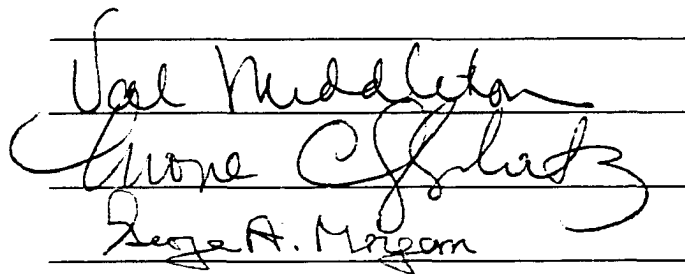 Val Middleton
C
George A. Morgan